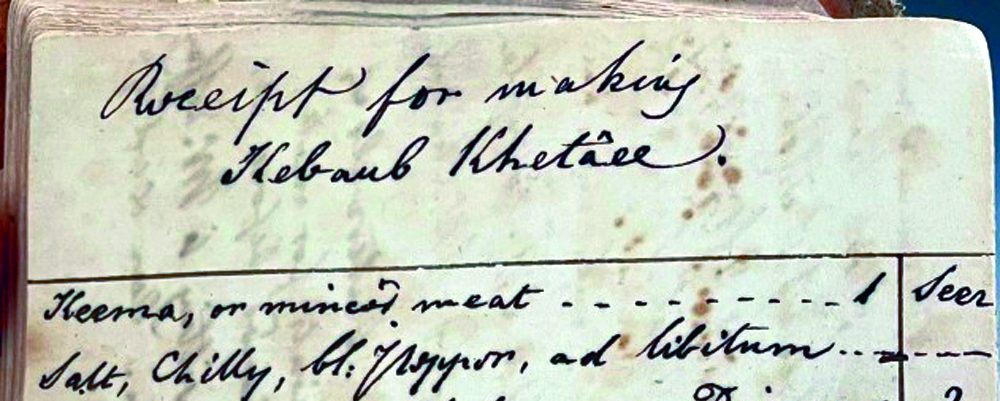 Receipt for making
Kebaub Khetâee.
Keema, or minced meat - - - - - - - - - - 1 Seer
Salt, Chilly, bl: Pepper, ad libitum .. - - - -
2